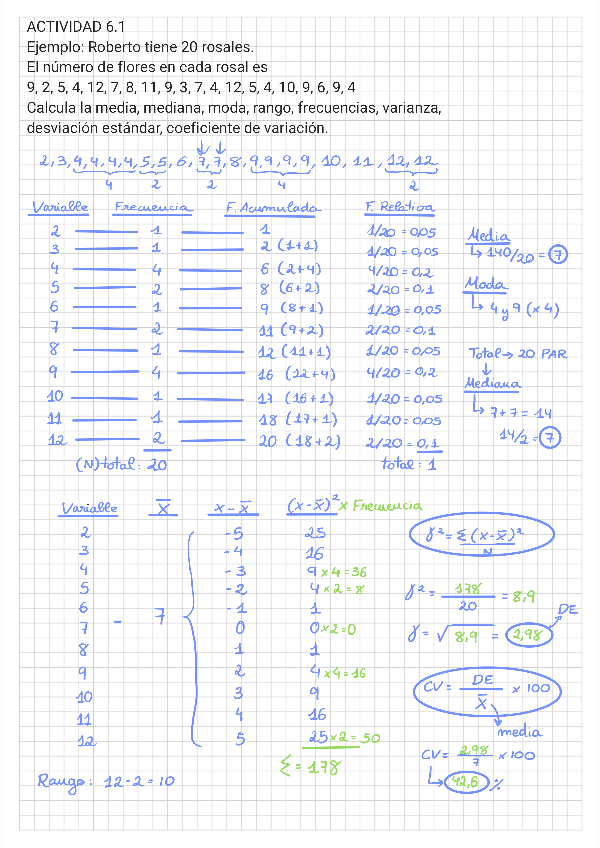 ACTIVIDAD 6.1
Ejemplo: Roberto tiene 20 rosales.
El número de flores en cada rosal es
9, 2, 5, 4, 12, 7, 8, 11, 9, 3, 7, 4, 12, 5, 4, 10, 9, 6, 9, 4
Calcula la media, mediana, moda, rango, frecuencias, varianza,
desviación estándar, coeficiente de variación.
2, 3, 4, 4, 4, 4, 5, 5, 6, 7, 7, 8, 9, 9, 9, 9, 10, 11, 12, 12
4 2 2 4 2
Variable Frecuencia F. Acumulada F. Relativa
2 1 1 1/20 = 0,05
3 1 2 (1+1) 1/20 = 0,05
4 4 6 (2+4) 4/20 = 0,2
5 2 8 (6+2) 2/20 = 0,1
6 1 9 (8+1) 1/20 = 0,05
7 2 11 (9+2) 2/20 = 0,1
8 1 12 (11+1) 1/20 = 0,05
9 4 16 (12+4) 4/20 = 0,2
10 1 17 (16+1) 1/20 = 0,05
11 1 18 (17+1) 1/20 = 0,05
12 2 20 (18+2) 2/20 = 0,1
(N) total: 20 total: 1
Media
↳ 140/20 = 7
Moda
↳ 4 y 9 (x 4)
Total → 20 PAR
↓
Mediana
↳ 7+7 = 14
14/2 = 7
Variable X̄ x - x̄ (x - x̄)² x Frecuencia
2 -5 25
3 -4 16
4 -3 9 x 4 = 36
5 -2 4 x 2 = 8
6 -1 1
7 - 7 0 0 x 2 = 0
8 1 1
9 2 4 x 4 = 16
10 3 9
11 4 16
12 5 25 x 2 = 50
Σ = 178
Rango: 12 - 2 = 10
γ² = Σ (x - x̄)² / N
γ² = 178 / 20 = 8,9
DE
γ = √8,9 = 2,98
CV = DE / X̄ x 100
media
CV = 2,98 / 7 x 100
↳ 42,6 %